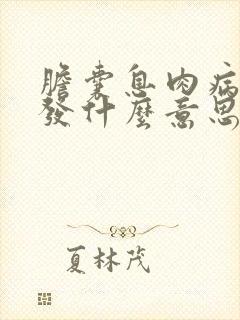 膽囊息肉病
發什麼意思
夏林茂